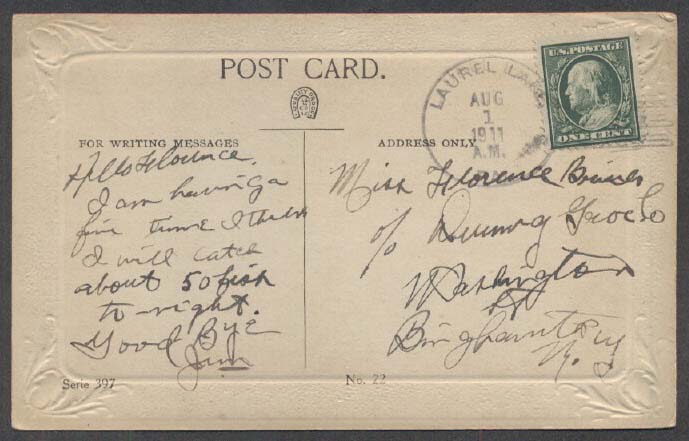 POST CARD.
LAUREL LAKE
AUG
1
1911
A.M.
U.S. POSTAGE
ONE CENT
FOR WRITING MESSAGES
ADDRESS ONLY
Hello Florence.
I am having a
fine time I think
I will catch
about 50 fish
to-night.
Good Bye
Jim
Miss Florence
c/o
Washington
St
Binghamton
N.Y.
Serie 397
No. 22